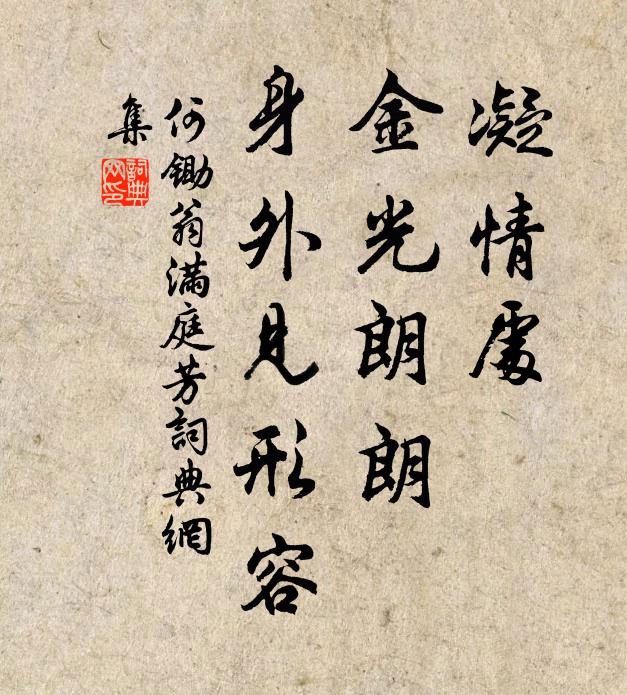 凝情處
金光朗朗
身外見形容
何鋤翁滿庭芳詞典網
集
詞典網印